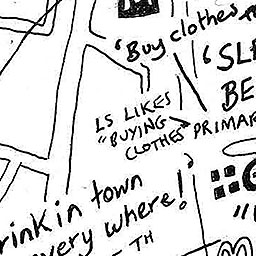 'Buy clothes
'SL
BE
LS LIKES
"BUYING
CLOTHES'
PRIMAR
rink in town
very where!'
TH